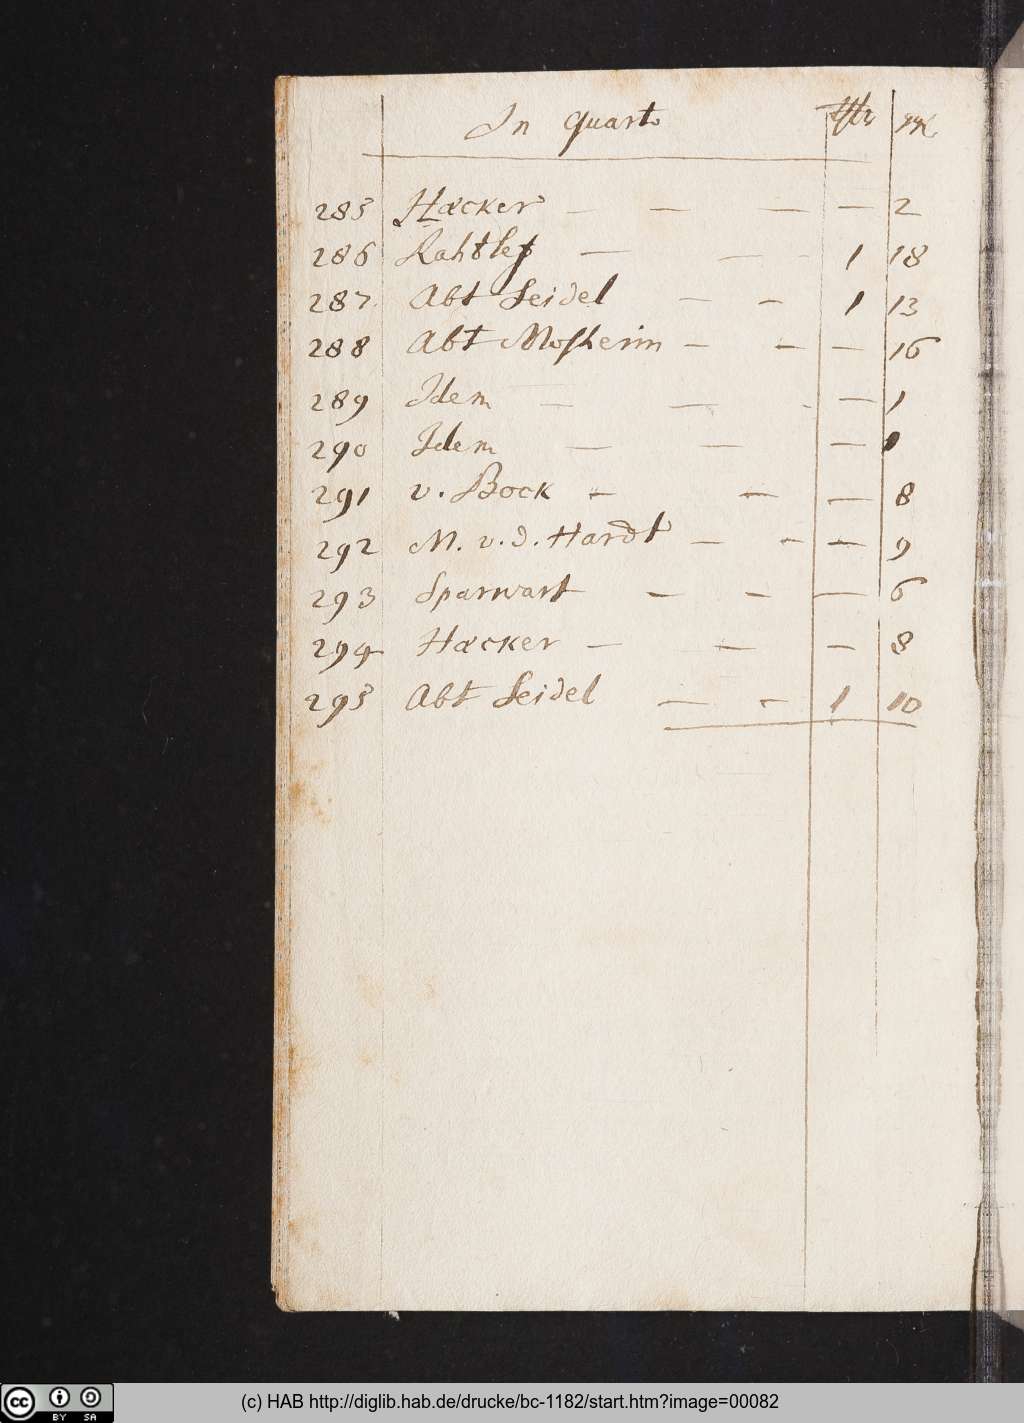 In Quarto
285 Hæcker — — — — 2
286 — — 1 18
287 Abt Seidel — — 1 13
288 Abt Mosheim — — — 16
289 Idem — — — 1
290 Idem — — — 1
291 v. Bock — — — 8
292 M. v. d. Hardt — — — 9
293 Sparwart — — — 6
294 Hæcker — — — 8
295 Abt Seidel — — 1 10
cc BY SA
(c) HAB http://diglib.hab.de/drucke/bc-1182/start.htm?image=00082